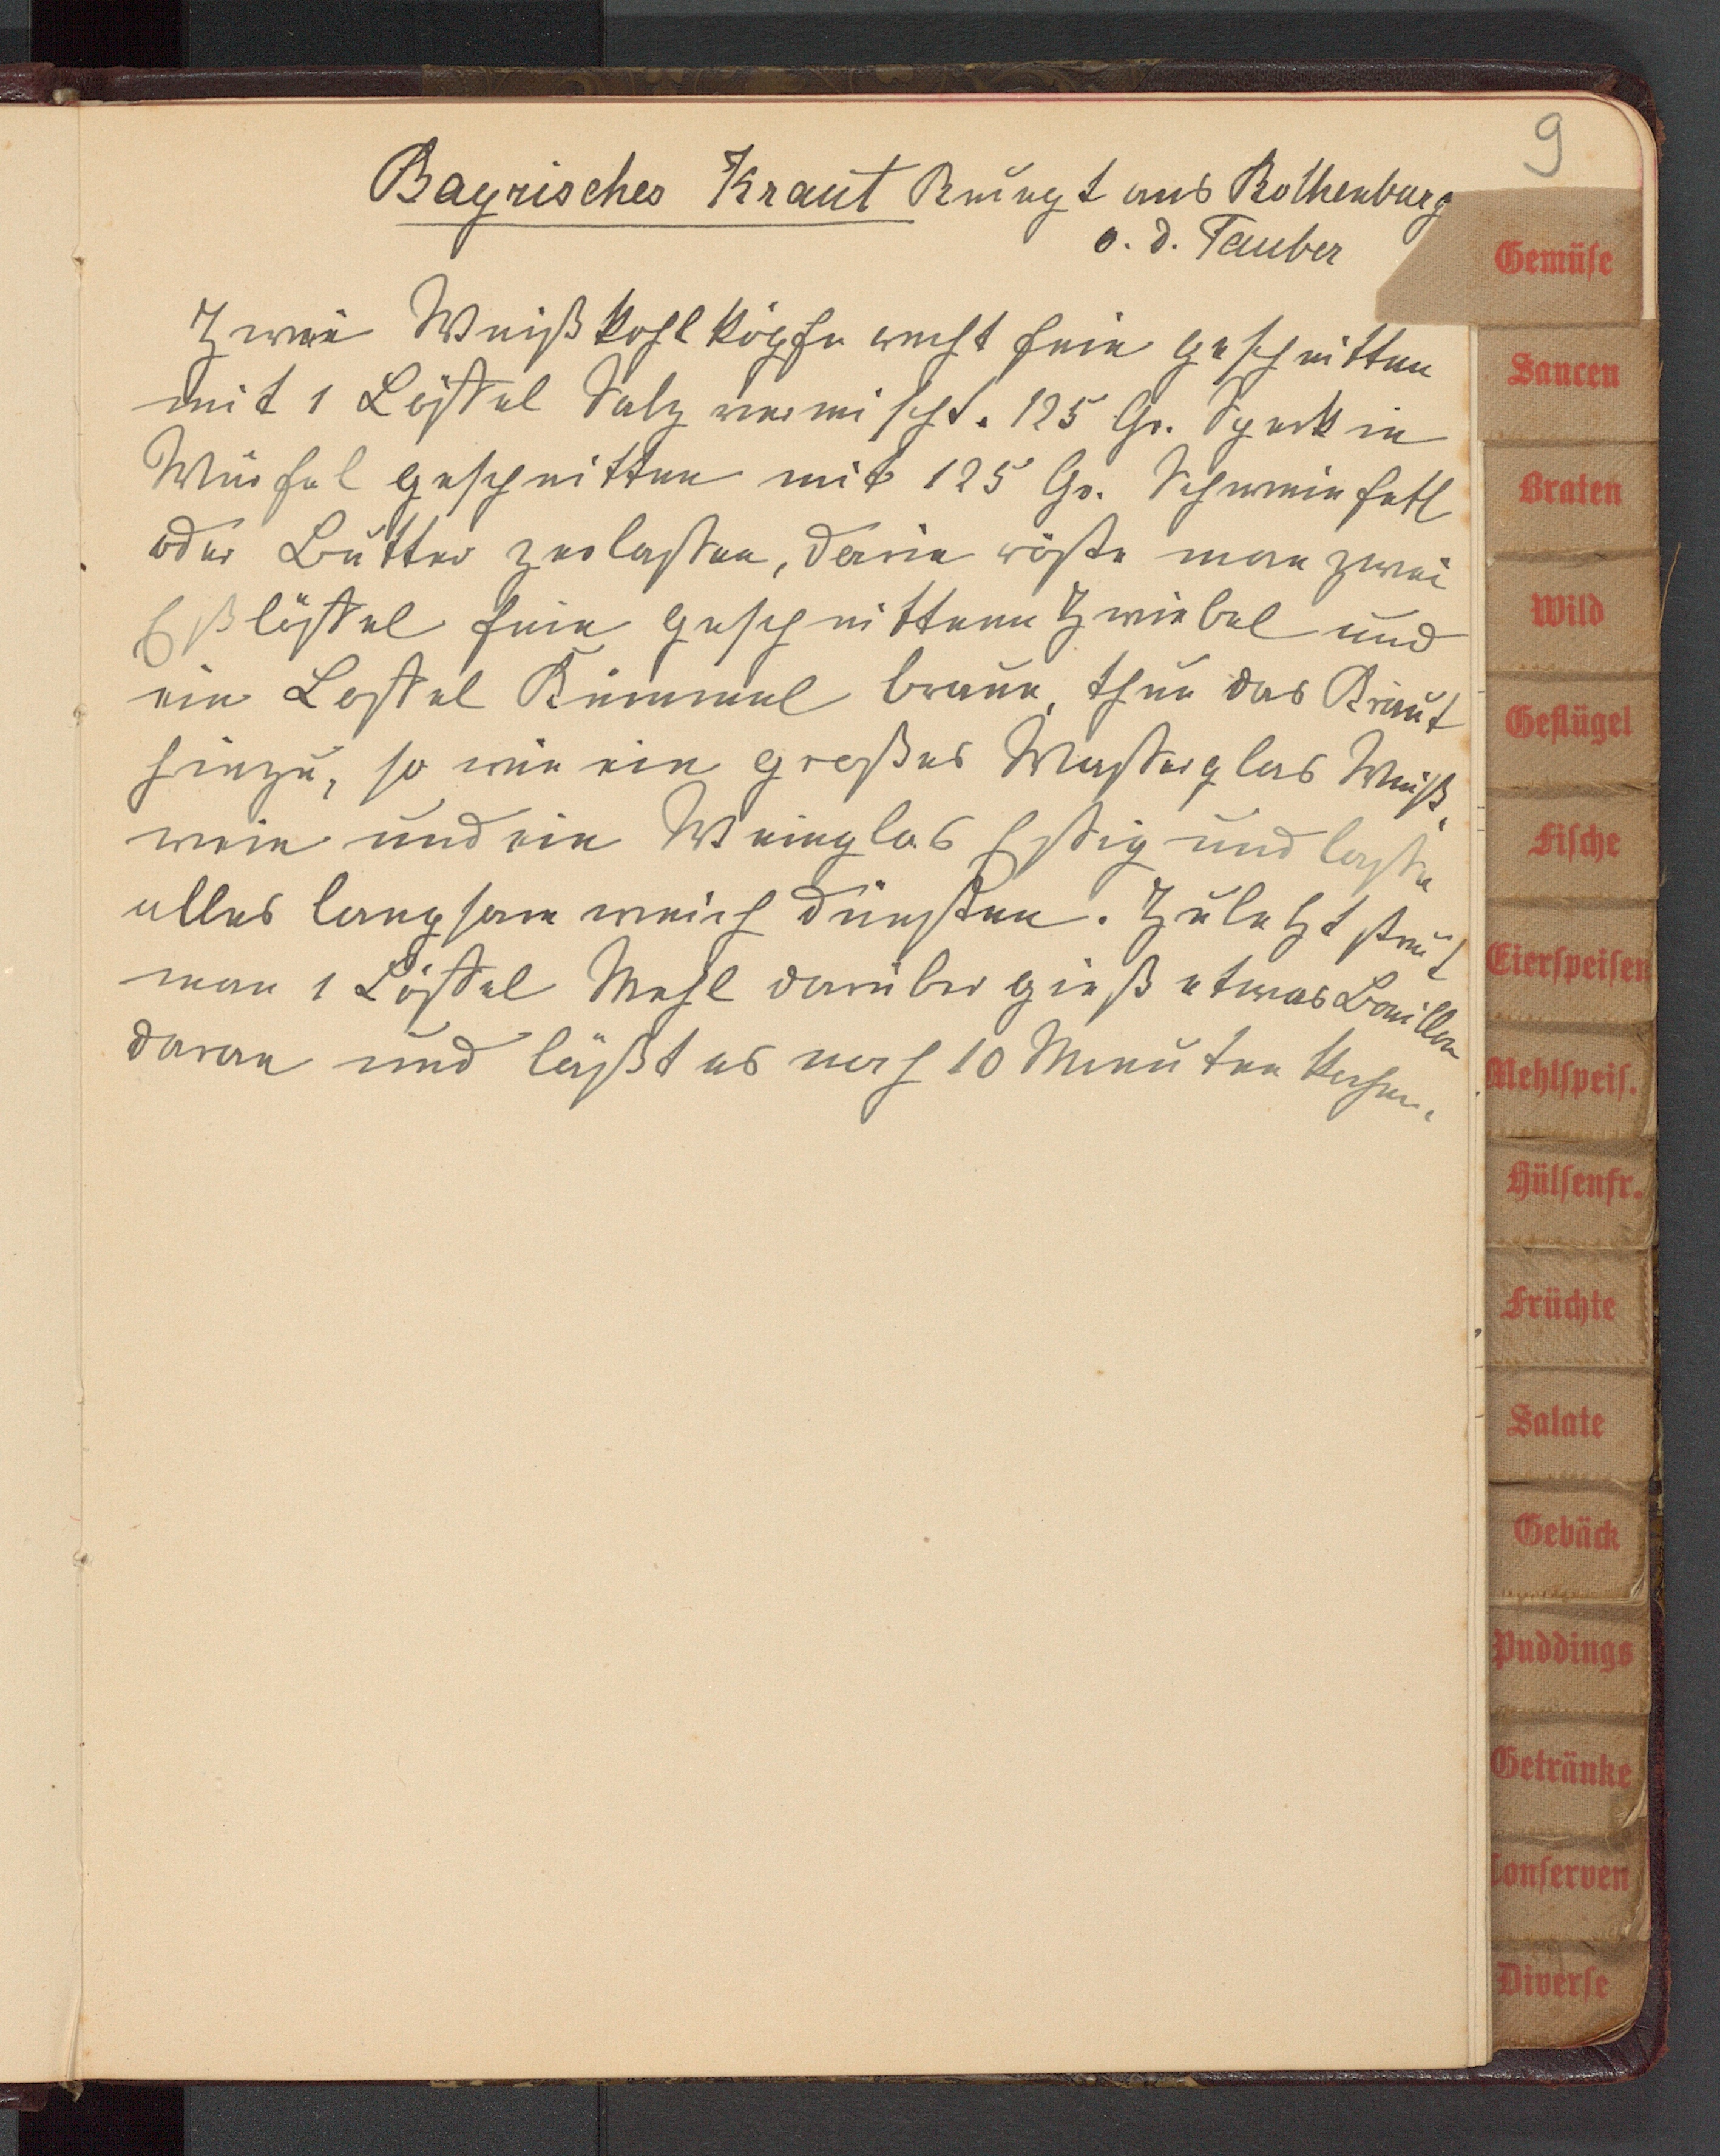 9
Bayrisches Kraut Rezept aus Rothenburg
o. d. Tauber
Zwei Weißkohlköpfe recht fein geschnitten
mit 1 Löffel Salz vermischt. 125 Gr. Speck in
Würfel geschnitten mit 125 Gr. Schweinfett
oder Butter zerlassen, darin röste man zwei
Eßlöffel fein geschnittene Zwiebel und
ein Loffel Kümmel braun, thue das Kraut
hinzu, so wie ein großes Wasserglas Weiß,
wein und ein Weinglas Essig und lasse
alles langsam weich dünsten. Zuletzt streut
man 1 Löffel Mehl darüber gieß etwas Bouillon
daran und läßt es noch 10 Minuten kochen.
Gemüse
Saucen
Braten
Wild
Geflügel
Fische
Eierspeisen
Mehlspeis.
Hülsenfr.
Früchte
Salate
Gebäck
Puddings
Getränke
Conserven
Diverse